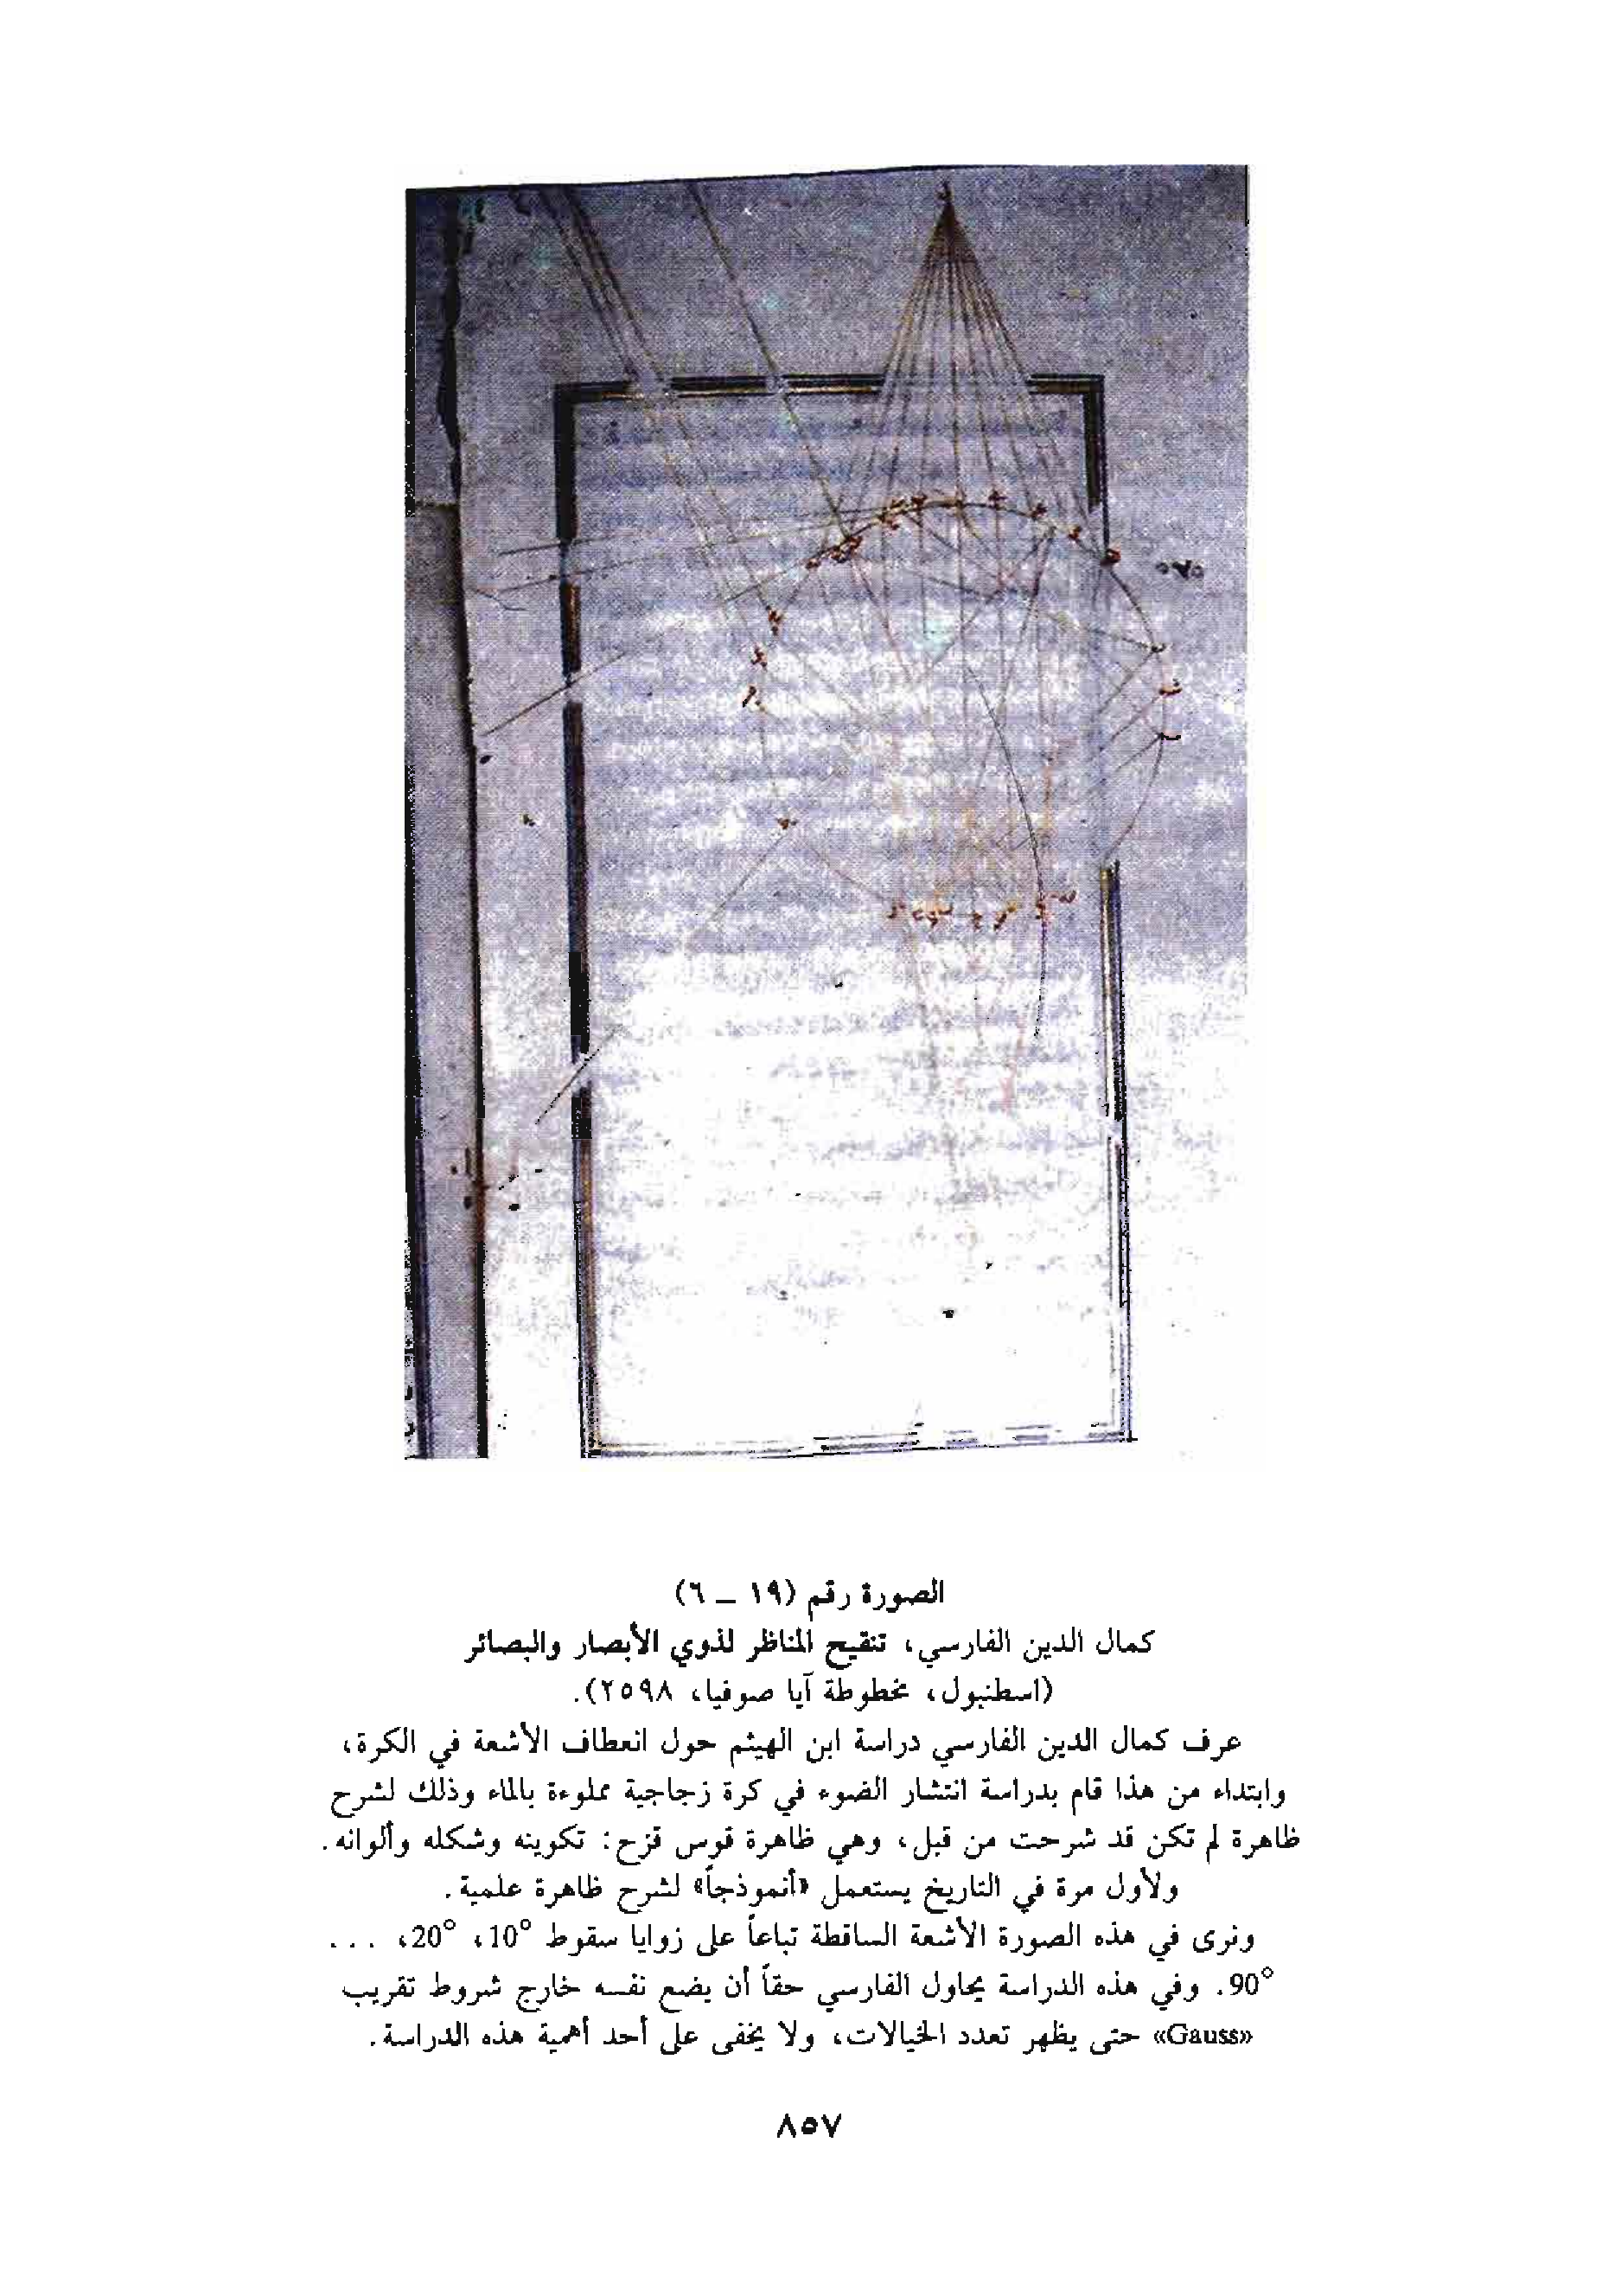 الصورة رقم (١٩ - ٦)
كمال الدين الفارسي، تنقيح المناظر لذوي الأبصار والبصائر
(اسطنبول، مخطوطة آيا صوفيا، ٢٥٩٨).
عرف كمال الدين الفارسي دراسة ابن الهيثم حول انعطاف الأشعة في الكرة،
وابتداء من هذا قام بدراسة انتشار الضوء في كرة زجاجية مملوءة بالماء وذلك لشرح
ظاهرة لم تكن قد شرحت من قبل، وهي ظاهرة قوس قزح: تكوينه وشكله وألوانه.
ولأول مرة في التاريخ يستعمل «أنموذجاً» لشرح ظاهرة علمية.
ونرى في هذه الصورة الأشعة الساقطة تباعاً على زوايا سقوط 10°، 20°، ...
90°. وفي هذه الدراسة يحاول الفارسي حقاً أن يضع نفسه خارج شروط تقريب
«Gauss» حتى يظهر تعدد الخيالات، ولا يخفى على أحد أهمية هذه الدراسة.
٨٥٧